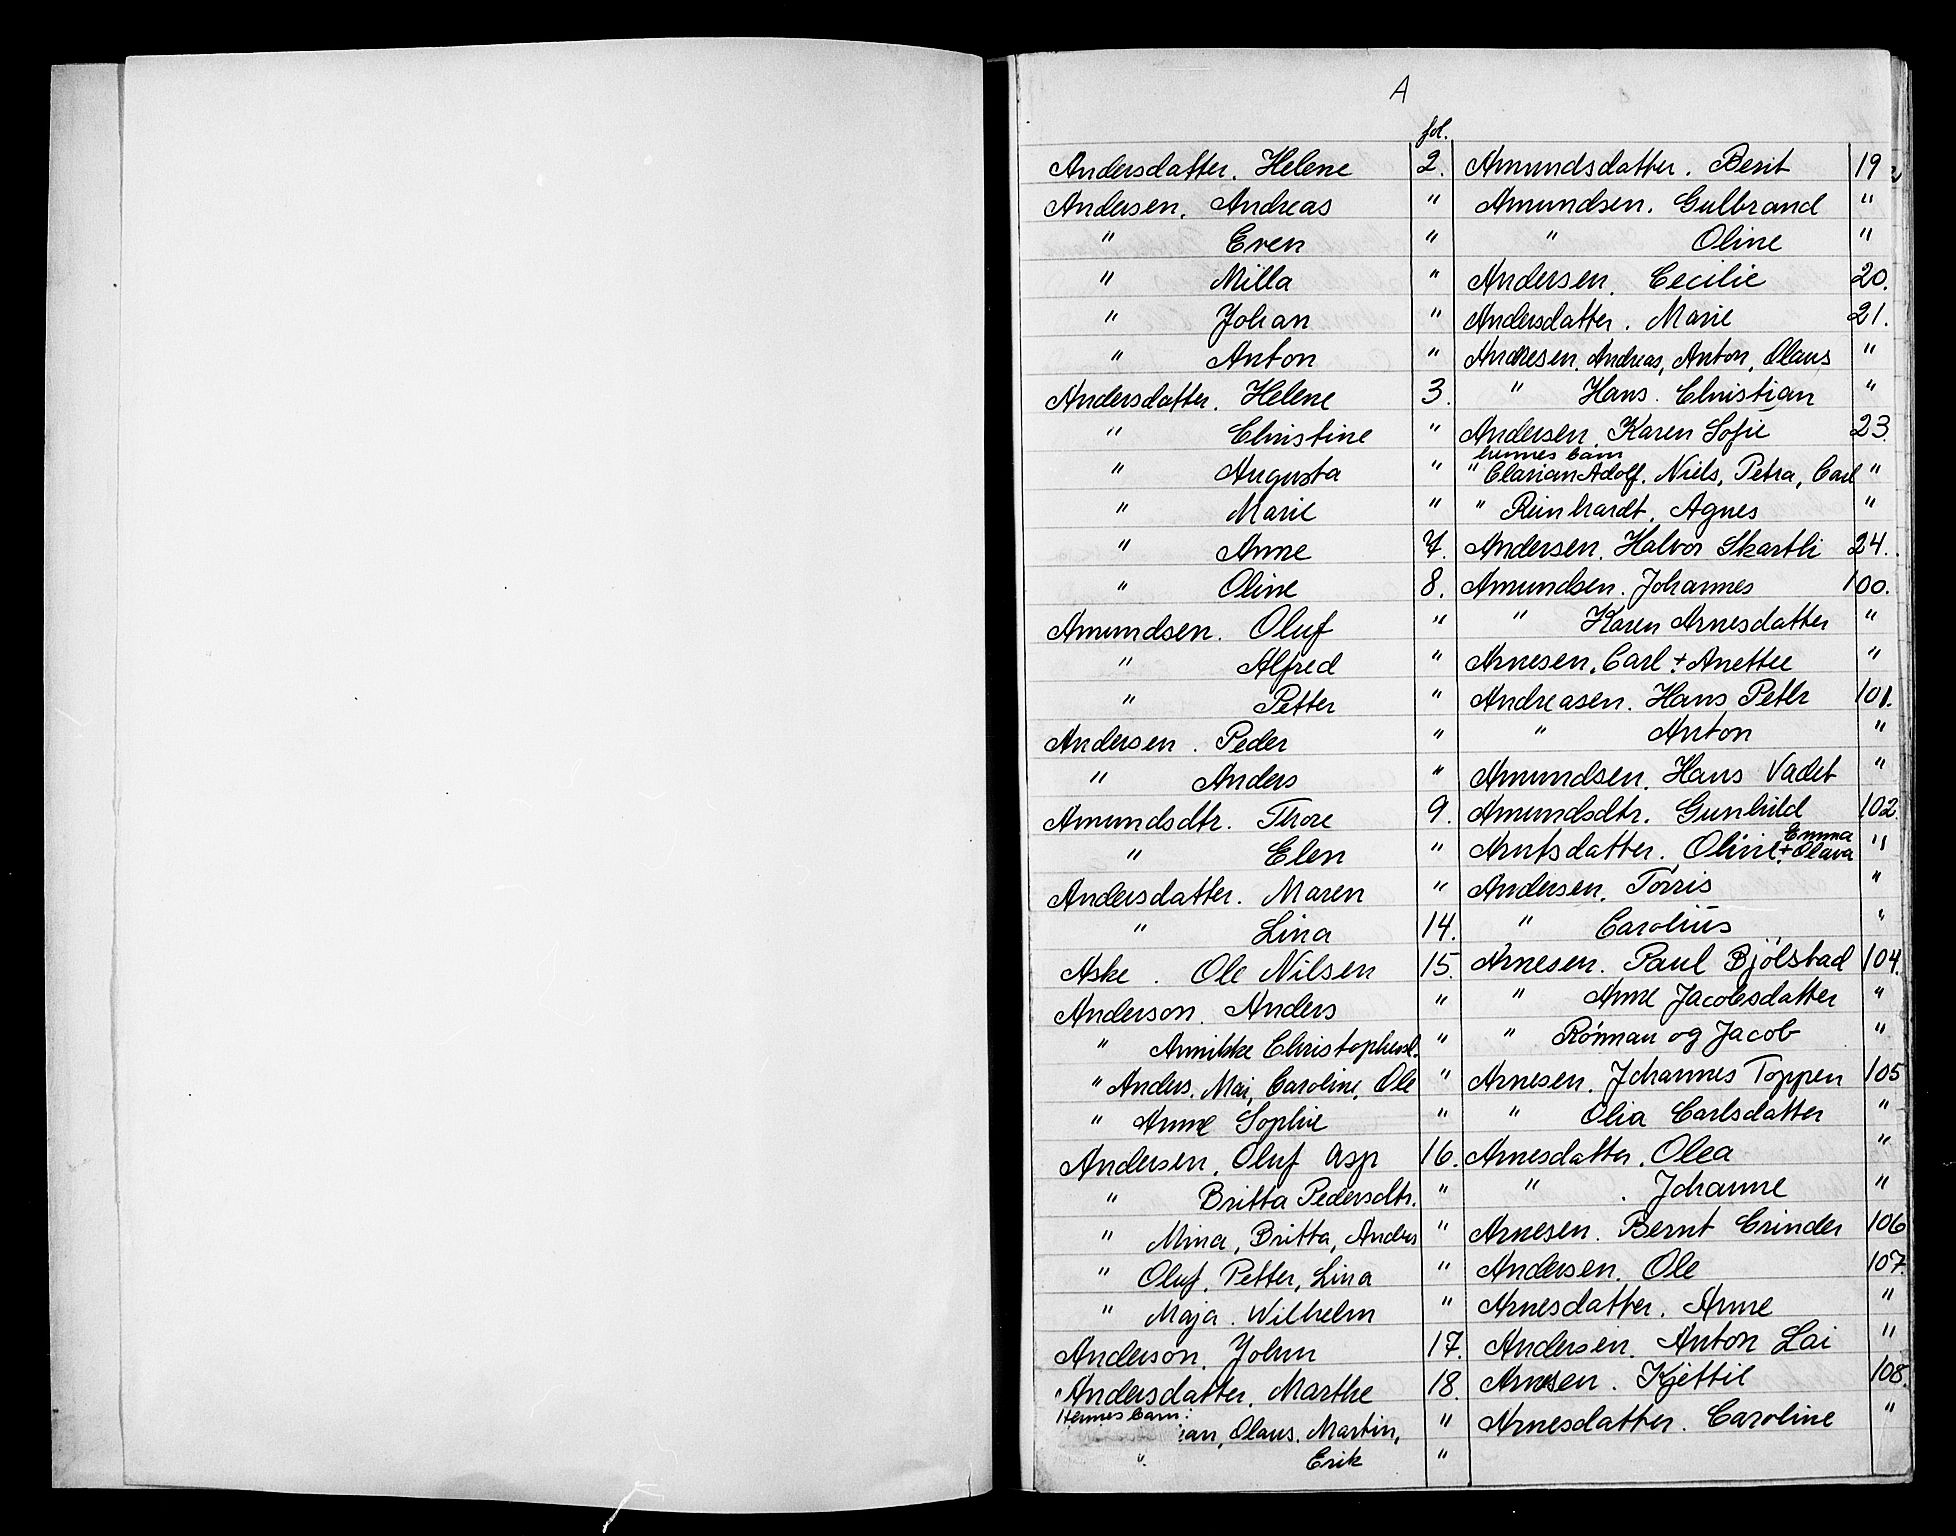 A
fol.
Andersdatter. Helene 2.
Andersen. Andreas "
" Even "
" Milla "
" Johan "
" Anton "
Andersdatter. Helene 3.
" Christine "
" Augusta "
" Marie "
" Anne 7.
" Oline 8.
Amundsen. Oluf "
" Alfred "
" Petter "
Andersen. Peder "
" Anders "
Amundsdtr. Thore 9.
" Elen "
Andersdatter. Maren "
" Lina 14.
Aske. Ole Nilsen 15.
Anderson. Anders "
" Annikke Christophersd. "
" Anders. Mai, Caroline, Ole "
" Anne Sophie "
Andersen. Oluf Asp 16.
" Britta Pedersdtr. "
" Mina, Britta, Anders "
" Oluf. Petter, Lina "
" Maja. Wilhelm "
Anderson. John 17.
Andersdatter. Marthe 18.
Hennes barn:
ian, Olaus. Martin, "
" Erik "
Amundsdatter. Berit 19
Amundsen. Gulbrand "
" Oline "
Andersen. Cecilie 20.
Andersdatter. Marie 21.
Andresen. Andreas, Anton, Olaus "
" Hans. Christian "
Andersen. Karen Sofie 23.
hennes barn
" Clarian Adolf. Niels, Petra, Carl "
" Reinhardt. Agnes "
Andersen. Halvor Skartli 24.
Amundsen. Johannes 100.
" Karen Arnesdatter "
Arnesen. Carl + Anettee "
Andreasen. Hans Peter 101.
" Anton "
Amundsen. Hans Vadet "
Amundsdtr. Gunhild 102
Arntsdatter. Oline + Emma Olava "
Andersen. Tørris "
" Carolius "
Arnesen. Paul Bjølstad 104.
" Anne Jacobsdatter "
" Rønnau og Jacob "
Arnesen. Johannes Toppen 105
" Olia Carlsdatter "
Arnesdatter. Olea "
" . Johanne "
Arnesen. Bernt Grinder 106
Andersen. Ole 107.
Arnesdatter. Anne "
Andersen. Anton Lai "
Arnesen. Kjettil 108.
Arnesdatter. Caroline "